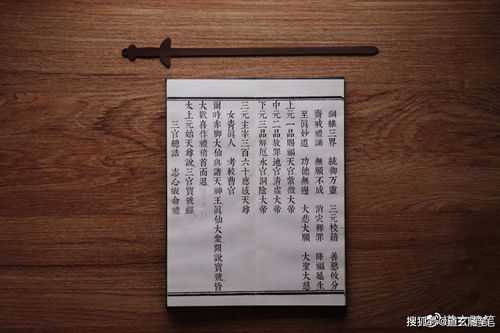 綱維三界　統御萬靈　三元校籍　善惡攸分
齋戒禮誦　無願不成　消災釋罪　降福延生
至眞妙道　功德無邊　大悲大願　大聖大慈
上元一品賜福天官紫微大帝
中元二品赦罪地官清虛大帝
下元三品解厄水官洞陰大帝
三元主宰三百六十應感天尊
女青眞人　考較曹官
爾時赤腳大仙與諸天神王眞仙大衆聞說寶號皆
大歡喜作禮稽首而退
太上元始天尊說三官寶號經
三官總誥　志心皈命禮
搜狐号@道玄随笔